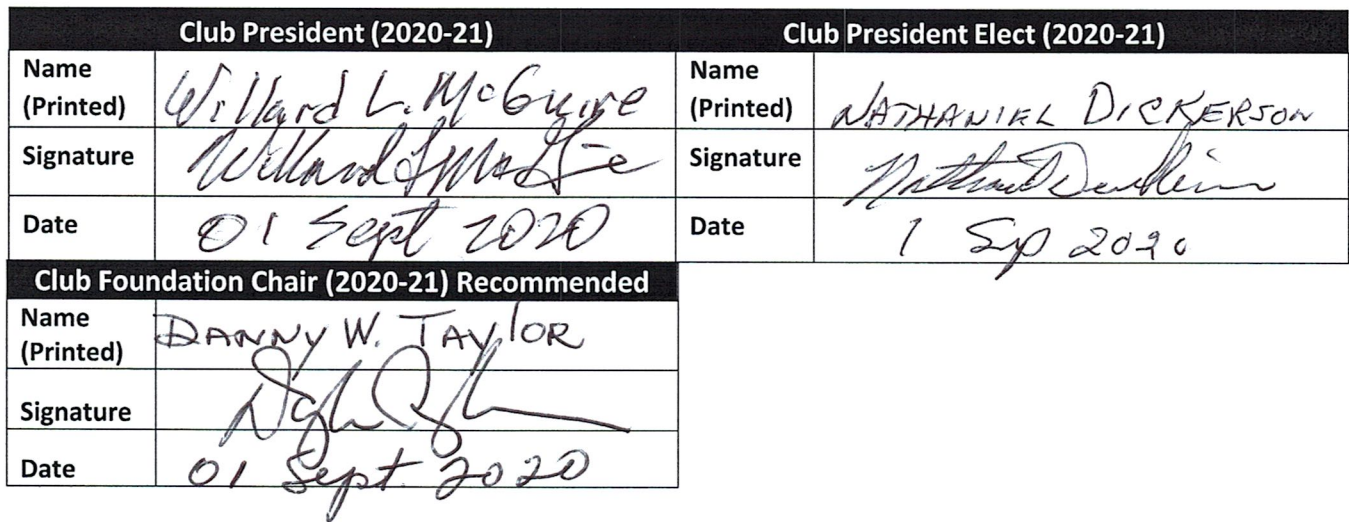 Club President (2020-21)
Name
(Printed)
Willard L. McGuire
Signature
Willard L McGuire
Date
01 Sept 2020
Club President Elect (2020-21)
Name
(Printed)
NATHANIEL DICKERSON
Signature
Date
1 Sep 2020
Club Foundation Chair (2020-21) Recommended
Name
(Printed)
DANNY W. TAYLOR
Signature
Date
01 Sept. 2020